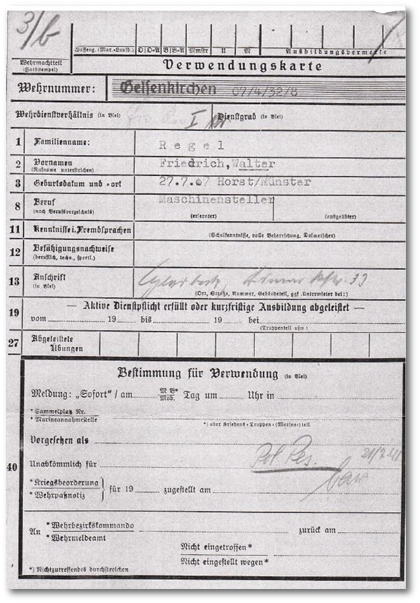 3/b
O│O-A│B│B-A│
Ausbildungsvermerke
Wehrmachtteil
Verwendungskarte
Wehrnummer: Gelsenkirchen 07/4/32/8
Wehrdienstverhältnis (in Blei) Dienstgrad (in Blei)
1 Familienname: Regel
2 Vornamen Friedrich,Walter
(Rufname unterstreichen)
3 Geburtsdatum und -ort 27.7.07 Horst/Münster
8 Beruf Maschinensteller
(nach Berufsverzeichnis) (erlernter) (ausgeübter)
11 Kenntnisse i. Fremdsprachen
(Schulkenntnisse, volle Beherrschung, Dolmetscher)
12 Befähigungsnachweise
(beruflich, techn., sportl.)
13 Anschrift
(in Blei) (Ort, Straße, Nummer, Gebäudeteil, ggf. Untermieter bei:)
19 — Aktive Dienstpflicht erfüllt oder kurzfristige Ausbildung abgeleistet —
vom 19 bis 19 bei
(Truppenteil usw.)
27 Abgeleistete
Übungen
Bestimmung für Verwendung (in Blei)
Meldung: „Sofort" / am Tag um Uhr in
* Sammelplatz Nr.
* Marineannahmestelle
*) oder Friedens-Truppen-(Marine-)teil
Vorgesehen als
40 Unabkömmlich für Pol. Res.
* Kriegsbeorderung
* Wehrpaßnotiz } für 19 zugestellt am
An * Wehrbezirkskommando zurück am
* Wehrmeldeamt
Nicht eingetroffen*
Nicht eingestellt wegen*
*) Nichtzutreffendes durchstreichen